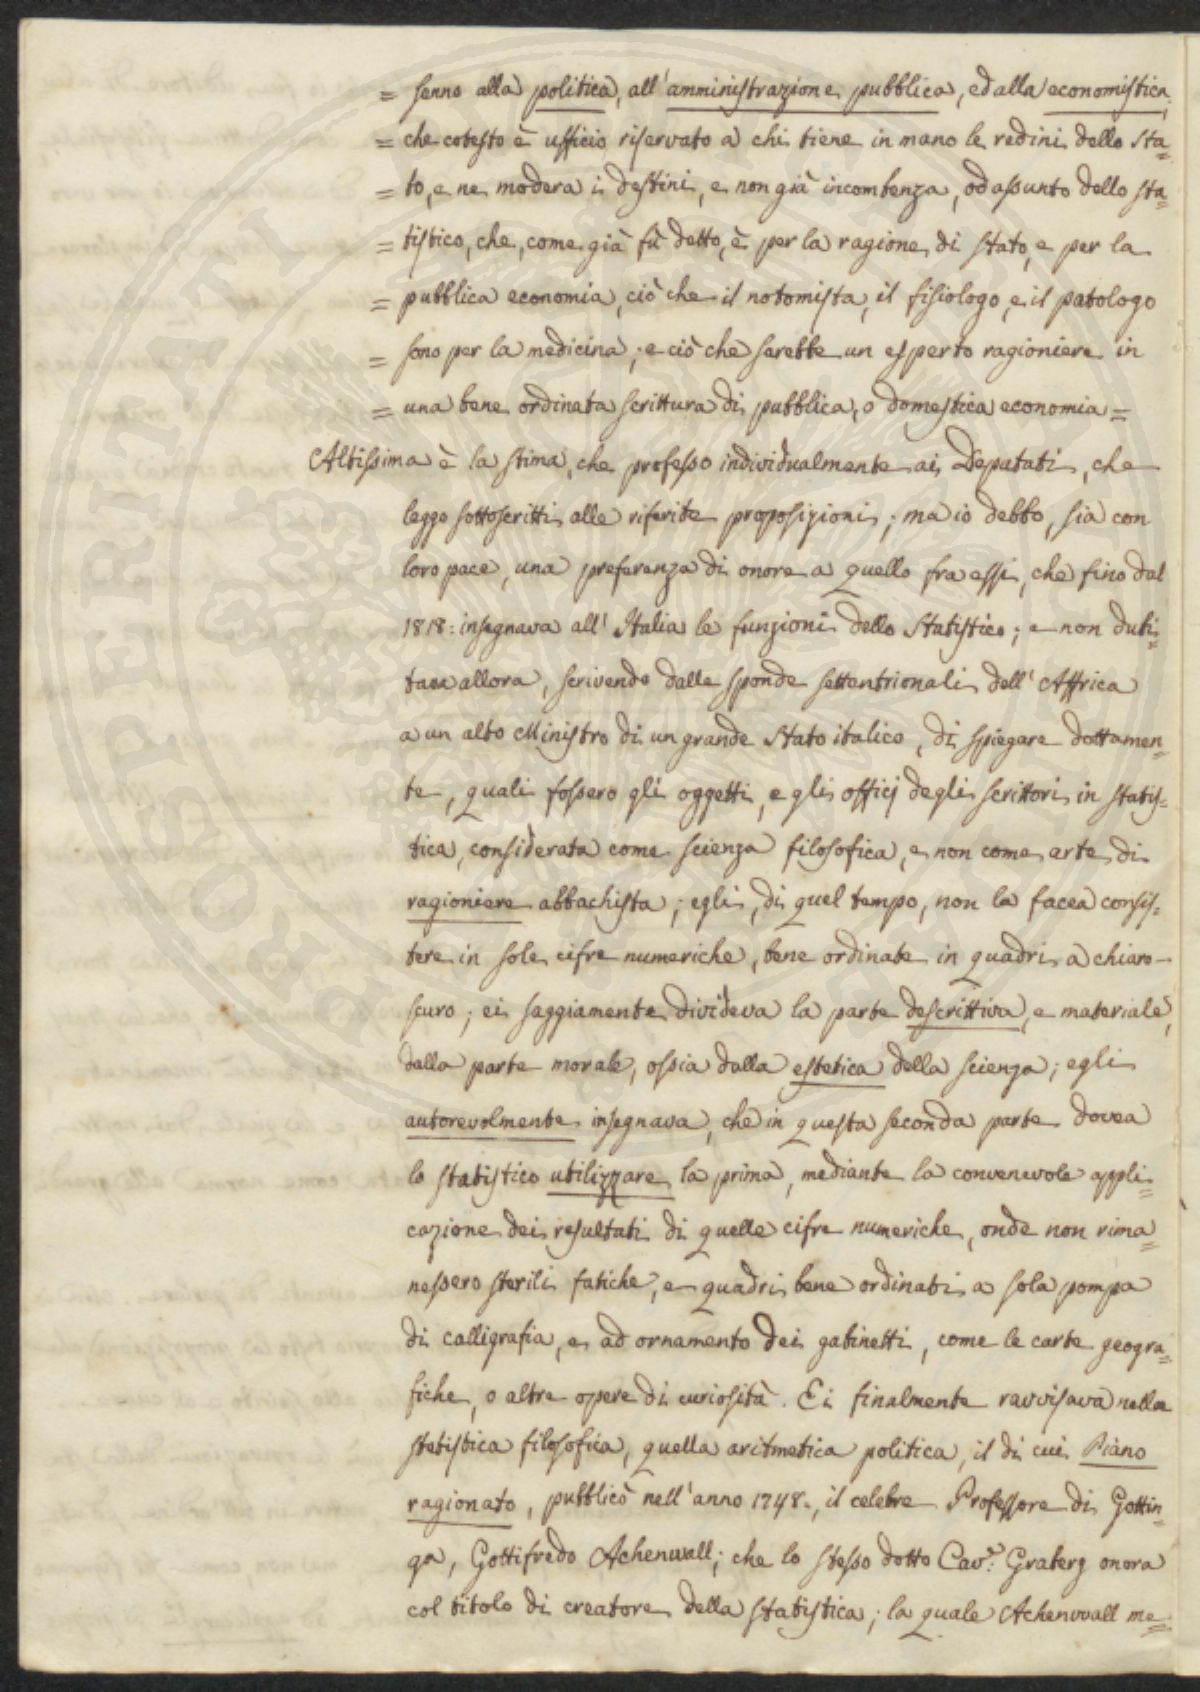 = senno alla politica, all'amministrazione pubblica, ed alla economistica,
= che cotesto è ufficio riservato a chi tiene in mano le redini dello Sta=
= to, e ne modera i destini, e non già incombenza, od assunto dello sta=
= tistico, che, come già fù detto, è per la ragione di stato, e per la
= pubblica economia, ciò che il notomista, il fisiologo, e il patologo
= sono per la medicina; e ciò che sarebbe un esperto ragioniere in
= una bene ordinata scrittura di pubblica, o domestica economia =
Altissima è la stima, che professo individualmente ai Deputati, che
leggo sottoscritti alle riferite proposizioni; ma io debbo, sia con
loro pace, una preferenza di onore a quello fra essi, che fino dal
1818: insegnava all'Italia le funzioni dello Statistico; e non dubi=
tava allora, scrivendo dalle sponde settentrionali dell'Affrica
a un alto Ministro di un grande Stato italico, di spiegare dottamen=
te, quali fossero gli oggetti, e gli officj degli scrittori in statis=
tica, considerata come scienza filosofica, e non come arte di
ragioniere abbachista; egli, di quel tempo, non la facea consis=
tere in sole cifre numeriche, bene ordinate in quadri a chiaro-
scuro; ei saggiamente divideva la parte descrittiva, e materiale,
dalla parte morale, ossia dalla estetica della scienza; egli
autorevolmente insegnava, che in questa seconda parte dovea
lo statistico utilizzare la prima, mediante la convenevole appli=
cazione dei resultati di quelle cifre numeriche, onde non rima=
nessero sterili fatiche, e quadri bene ordinati a sola pompa
di calligrafia, e ad ornamento dei gabinetti, come le carte geogra=
fiche, o altre opere di curiosità. Ei finalmente ravvisava nella
statistica filosofica, quella aritmetica politica, il di cui Piano
ragionato, pubblicò nell'anno 1748., il celebre Professore di Gottin=
ga, Gottifredo Achenwall; che lo stesso dotto Cav.r Graberg onora
col titolo di creatore della statistica; la quale Achenwall me=
PROSPERITATI